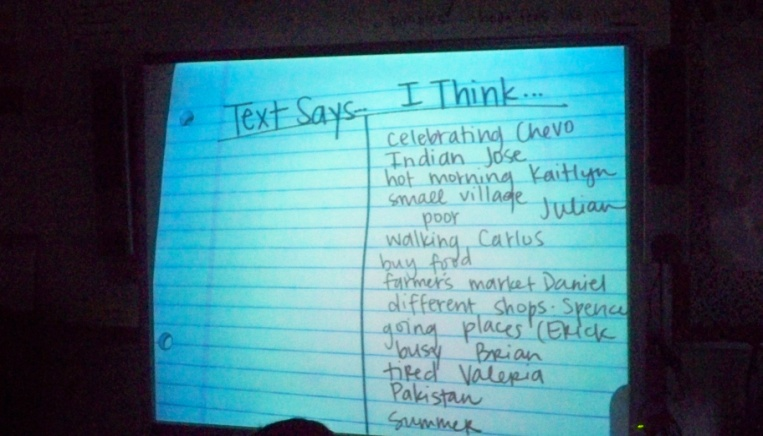 Text Says... I Think...
celebrating Chevo
Indian Jose
hot morning Kaitlyn
small village
poor Julian
walking Carlos
buy food
farmer's market Daniel
different shops. Spence
going places (Erick
busy Brian
tired Valeria
Pakistan
summer